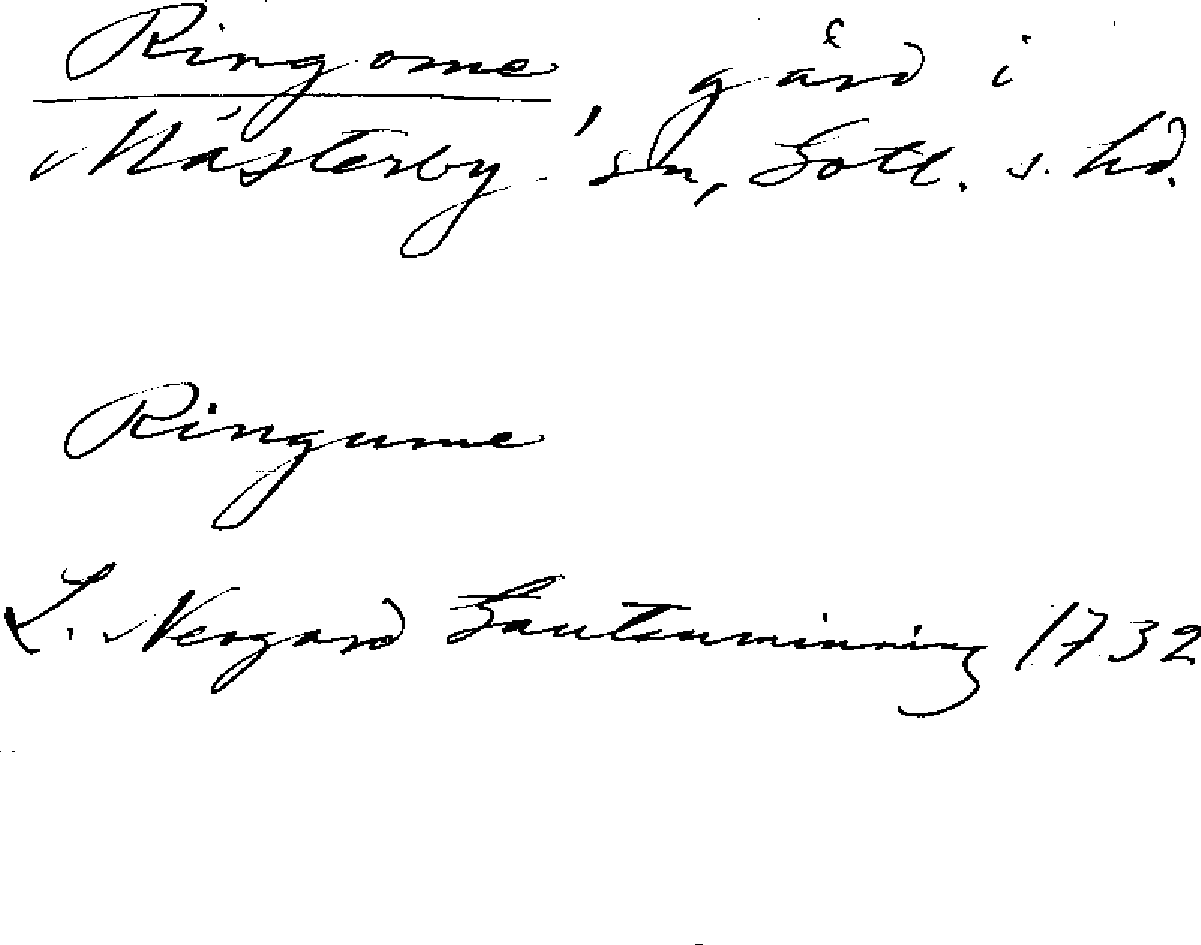 Ringome, gård i
Mästerby sn, Gotl. s. hd.
Ringume
L. Nergard Gautauminning 1732